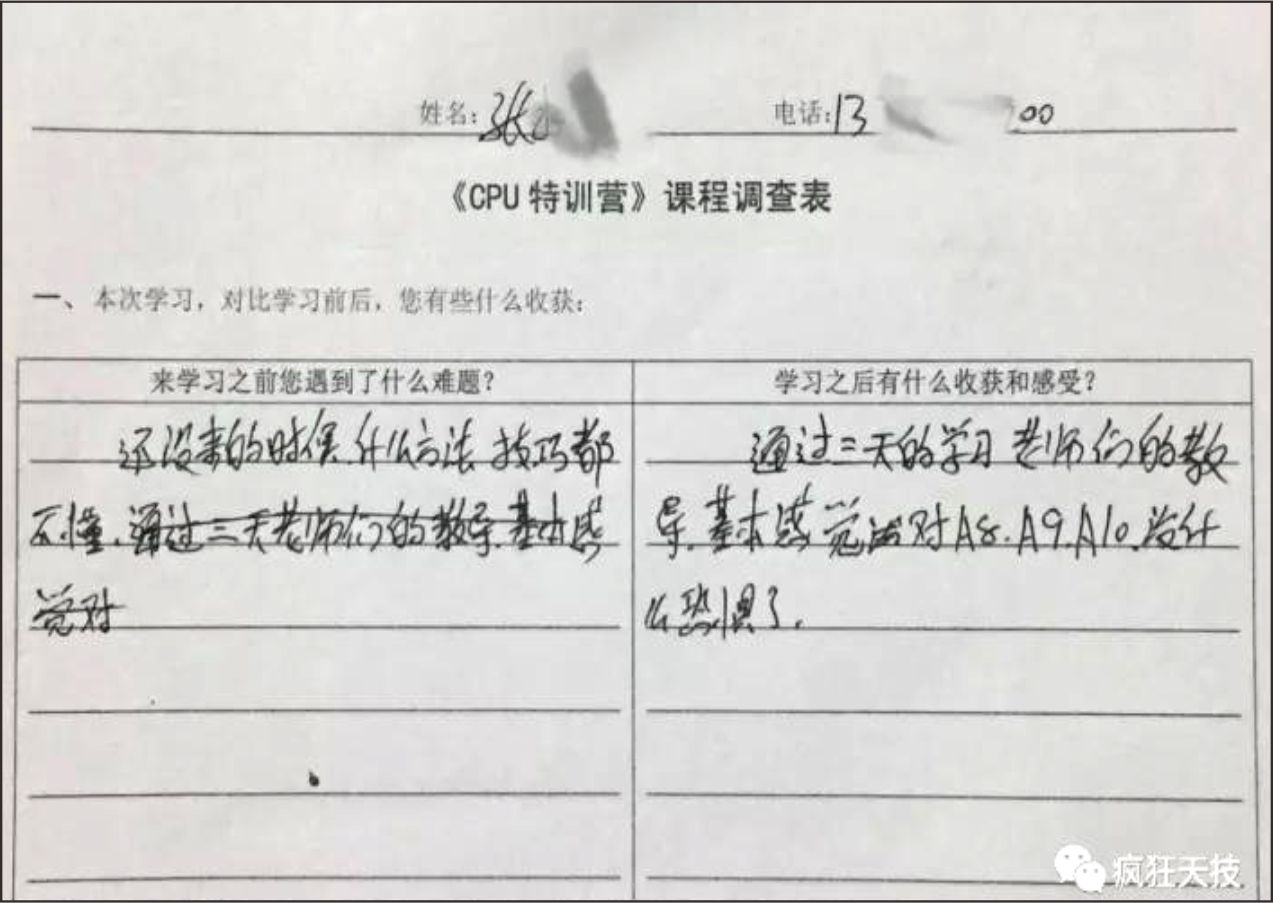 姓名:张
电话:13 00
《CPU特训营》课程调查表
一、本次学习，对比学习前后，您有些什么收获:
来学习之前您遇到了什么难题?
还没来的时候.什么方法.技巧都
不懂.通过三天老师们的教导.基本感
觉对
学习之后有什么收获和感受?
通过三天的学习老师们的教
导.基本感觉对A8.A9.A10.没什
么恐惧了.
疯狂天技